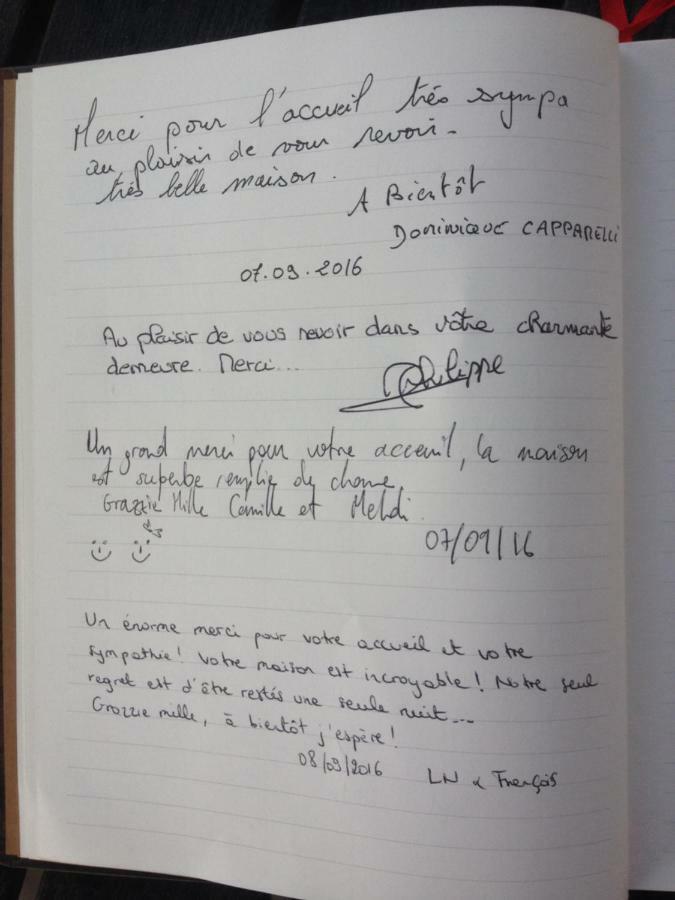 Merci pour l'accueil très sympa
au plaisir de vour revoir.
très belle maison.
A Bientôt
Dominique CAPPARELLI
07.09.2016
Au plaisir de vous revoir dans vôtre charmante
demeure. Merci...
Philippe
Un grand merci pour votre acceuil, la maison
est superbe remplie de charme.
Grazzie Mille Camille et Mehdi.
07/09/16
Un énorme merci pour votre accueil et votre
sympathie! Votre maison est incroyable! Notre seul
regret est d'être restés une seule nuit...
Grazzie mille, à bientôt j'espère!
08/09/2016
LN & François